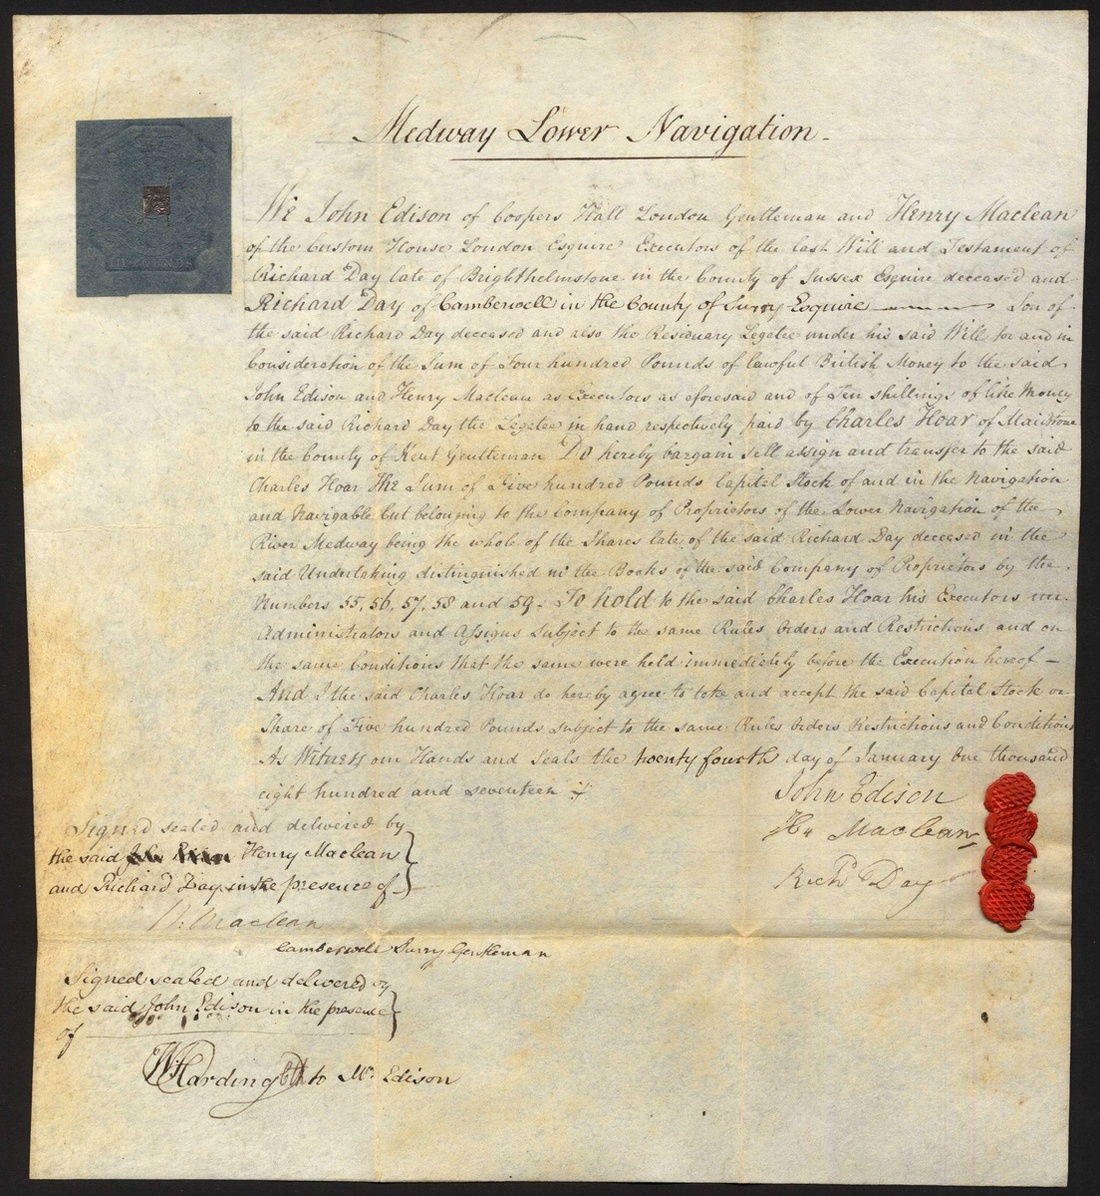 Medway Lower Navigation.
We John Edison of Coopers Hall London Gentleman and Henry Maclean
of the Custom House London Esquire Executors of the last Will and Testament of
Richard Day late of Brighthelmstone in the County of Sussex Esquire deceased and
Richard Day of Camberwell in the County of Surry Esquire Son of
the said Richard Day deceased and also the Residuary Legatee under his said Will for and in
Consideration of the Sum of Four hundred Pounds of lawful British Money to the said
John Edison and Henry Maclean as Executors as aforesaid and of Ten shillings of like Money
to the said Richard Day the Legatee in hand respectively paid by Charles Hoar of Maidstone
in the County of Kent Gentleman Do hereby bargain sell assign and transfer to the said
Charles Hoar The Sum of Five hundred Pounds Capital Stock of and in the Navigation
and Navigable Cut belonging to the Company of Proprietors of the Lower Navigation of the
River Medway being the whole of the Shares late of the said Richard Day deceased in the
said Undertaking distinguished in the Books of the said Company of Proprietors by the
Numbers 55, 56, 57, 58 and 59. To hold to the said Charles Hoar his Executors
Administrators and Assigns subject to the same Rules Orders and Restrictions and on
the same Conditions that the same were held immediately before the Execution hereof –
And I the said Charles Hoar do hereby agree to take and accept the said Capital Stock or
Share of Five hundred Pounds subject to the same Rules Orders Restrictions and Conditions
As Witness our Hands and Seals the twenty fourth day of January One thousand
eight hundred and seventeen
John Edison
Hy Maclean
Richd Day
Signed sealed and delivered by
the said Henry Maclean
and Richard Day in the presence of
Maclean
Camberwell Surry Gentleman
Signed sealed and delivered by
the said John Edison in the presence
of
Harding to Mr. Edison